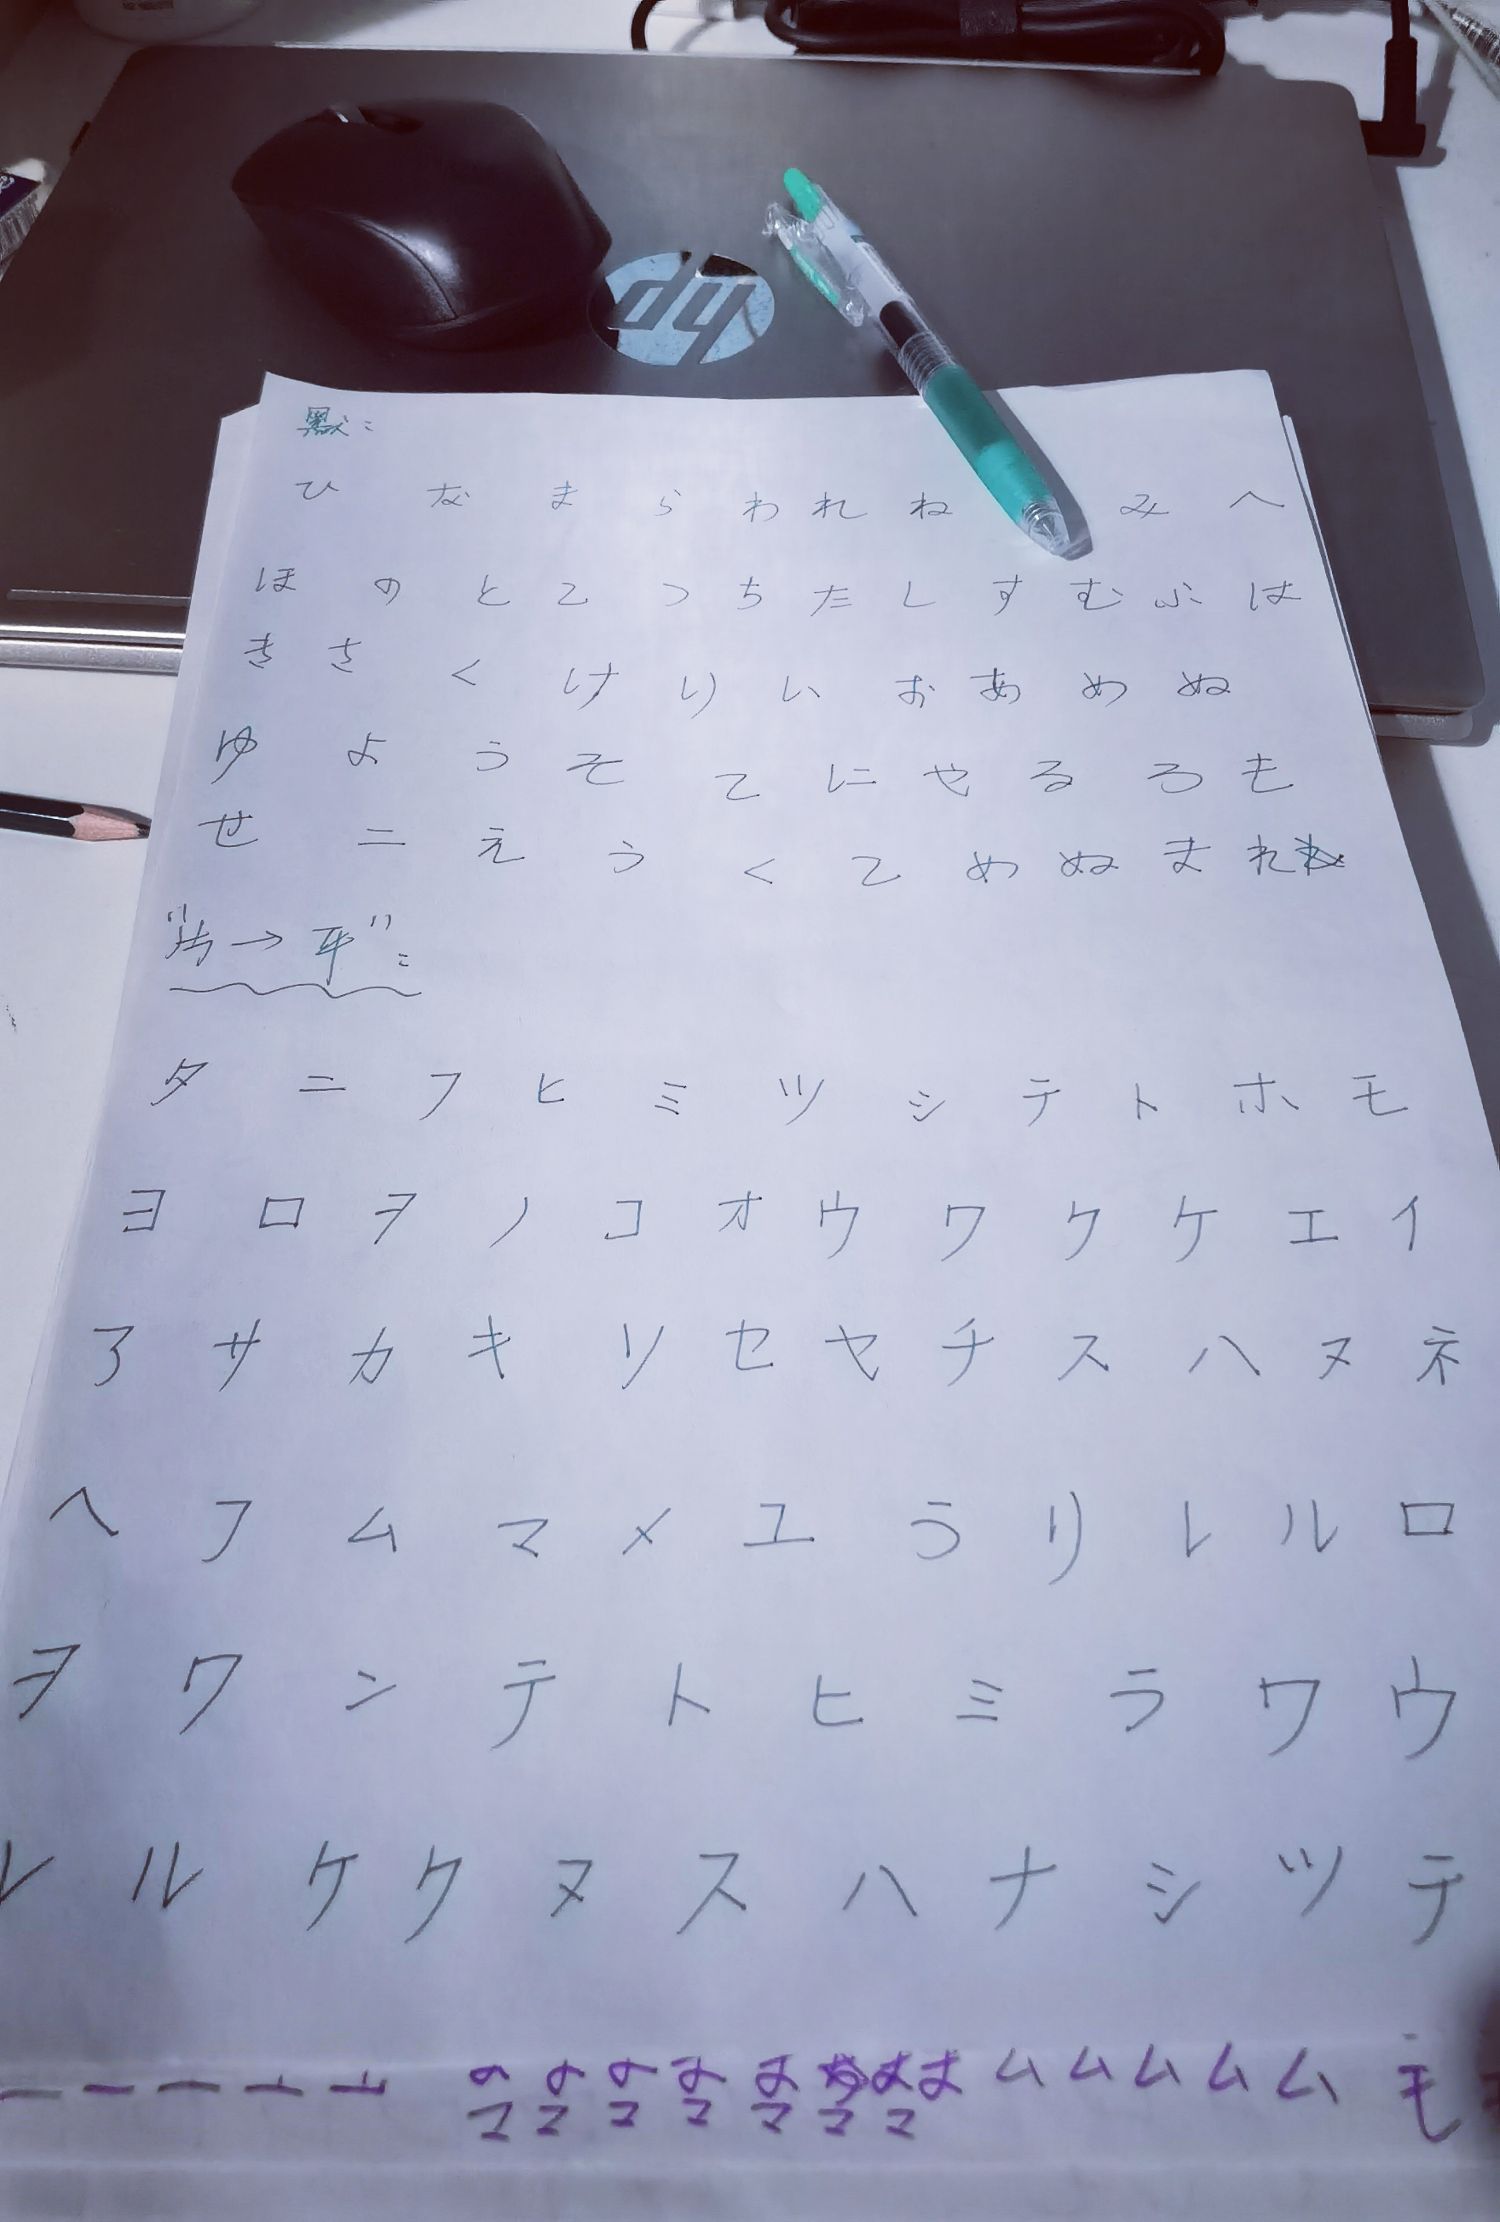 hp
默:
ひ な ま ら わ れ ね み へ
ほ の と て つ ち た し す む ふ は
き さ く け り い お あ め ぬ
ゆ よ う そ て に や る ろ も
せ ニ え う く て め ぬ ま れ
"片→平":
タ ニ フ ヒ ミ ツ シ テ ト ホ モ
ヨ ロ ヲ ノ コ オ ウ ワ ク ケ エ イ
ア サ カ キ ソ セ ヤ チ ス ハ ヌ ネ
ヘ フ ム マ メ ユ う り レ ル ロ
ヲ ワ ン テ ト ヒ ミ ラ ワ ウ
レ ル ケ ク ヌ ス ハ ナ シ ツ テ
ム ム ム ム ム モ
マ マ マ マ マ マ マ